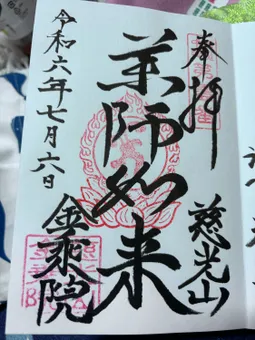 奉拝
慈光山
薬師如来
金乗院
令和六年七月六日